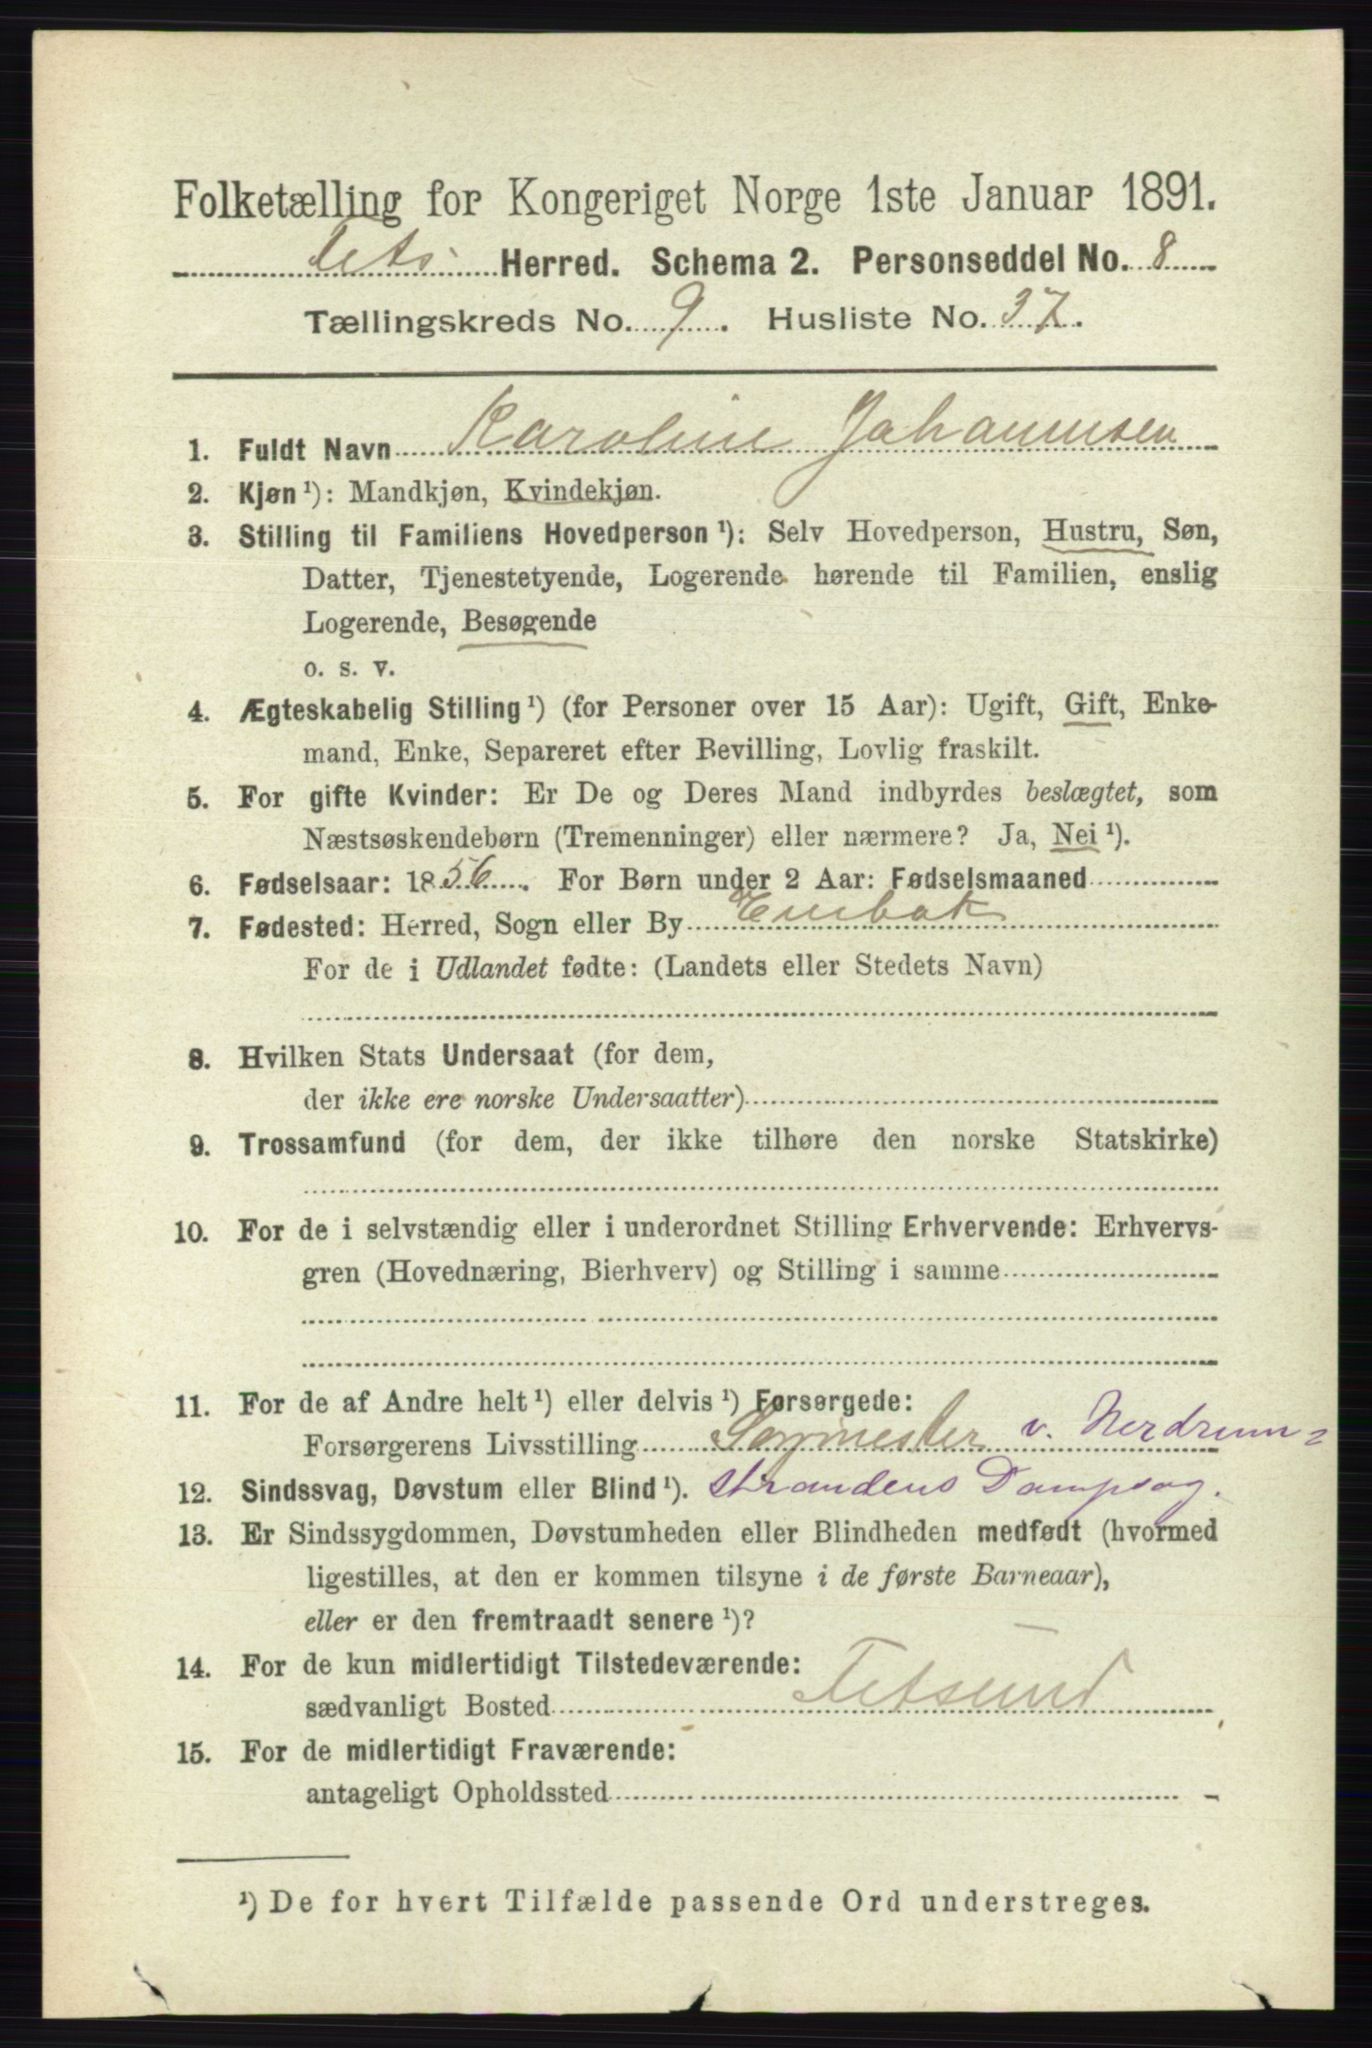 Folketælling for Kongeriget Norge 1ste Januar 1891.
Fets Herred. Schema 2. Personseddel No. 8
Tællingskreds No. 9. Husliste No. 37.
1. Fuldt Navn Karoline Johannnsen
2. Kjøn ¹): Mandkjøn, Kvindekjøn.
3. Stilling til Familiens Hovedperson ¹): Selv Hovedperson, Hustru, Søn,
Datter, Tjenestetyende, Logerende hørende til Familien, enslig
Logerende, Besøgende
o. s. v.
4. Ægteskabelig Stilling ¹) (for Personer over 15 Aar): Ugift, Gift, Enke-
mand, Enke, Separeret efter Bevilling, Lovlig fraskilt.
5. For gifte Kvinder: Er De og Deres Mand indbyrdes beslægtet, som
Næstsøskendebørn (Tremenninger) eller nærmere? Ja, Nei ¹).
6. Fødselsaar: 1856. For Børn under 2 Aar: Fødselsmaaned
7. Fødested: Herred, Sogn eller By Enebak
For de i Udlandet fødte: (Landets eller Stedets Navn)
8. Hvilken Stats Undersaat (for dem,
der ikke ere norske Undersaatter)
9. Trossamfund (for dem, der ikke tilhøre den norske Statskirke)
10. For de i selvstændig eller i underordnet Stilling Erhvervende: Erhvervs-
gren (Hovednæring, Bierhverv) og Stilling i samme
11. For de af Andre helt ¹) eller delvis ¹) Forsørgede:
Forsørgerens Livsstilling Sagmester v. Nerdrum=
12. Sindssvag, Døvstum eller Blind ¹). strandens Dampsag.
13. Er Sindssygdommen, Døvstumheden eller Blindheden medfødt (hvormed
ligestilles, at den er kommen tilsyne i de første Barneaar),
eller er den fremtraadt senere ¹)?
14. For de kun midlertidigt Tilstedeværende:
sædvanligt Bosted Fetsund
15. For de midlertidigt Fraværende:
antageligt Opholdssted
¹) De for hvert Tilfælde passende Ord understreges.